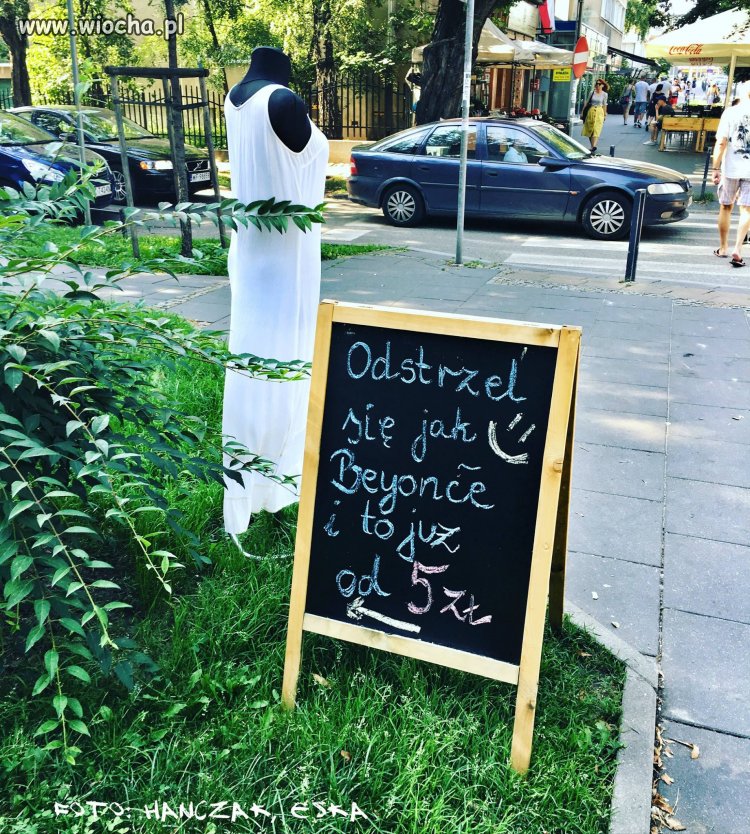 www.wiocha.pl
Coca-Cola
Odstrzel
się jak
Beyonče
i to już
od 5 zł
FOTO: HANCZAK ESKA